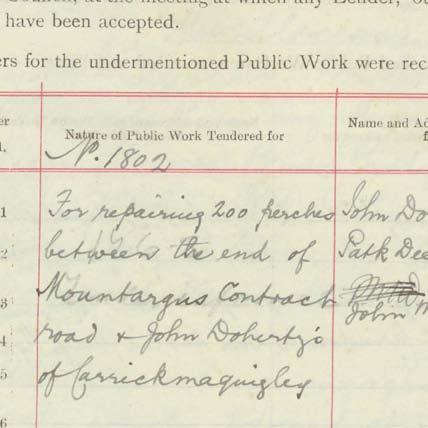 Council, at the meeting at which any Tender,
have been accepted.
ers for the undermentioned Public Work were rec
er
Nature of Public Work Tendered for
Name and Ad
f
No. 1802
1 For repairing 200 perches John Do
2 between the end of Patk Dee
3 Mountargus Contract
John M
4 road & John Doherty's
5 of Carrickmaquigley
6